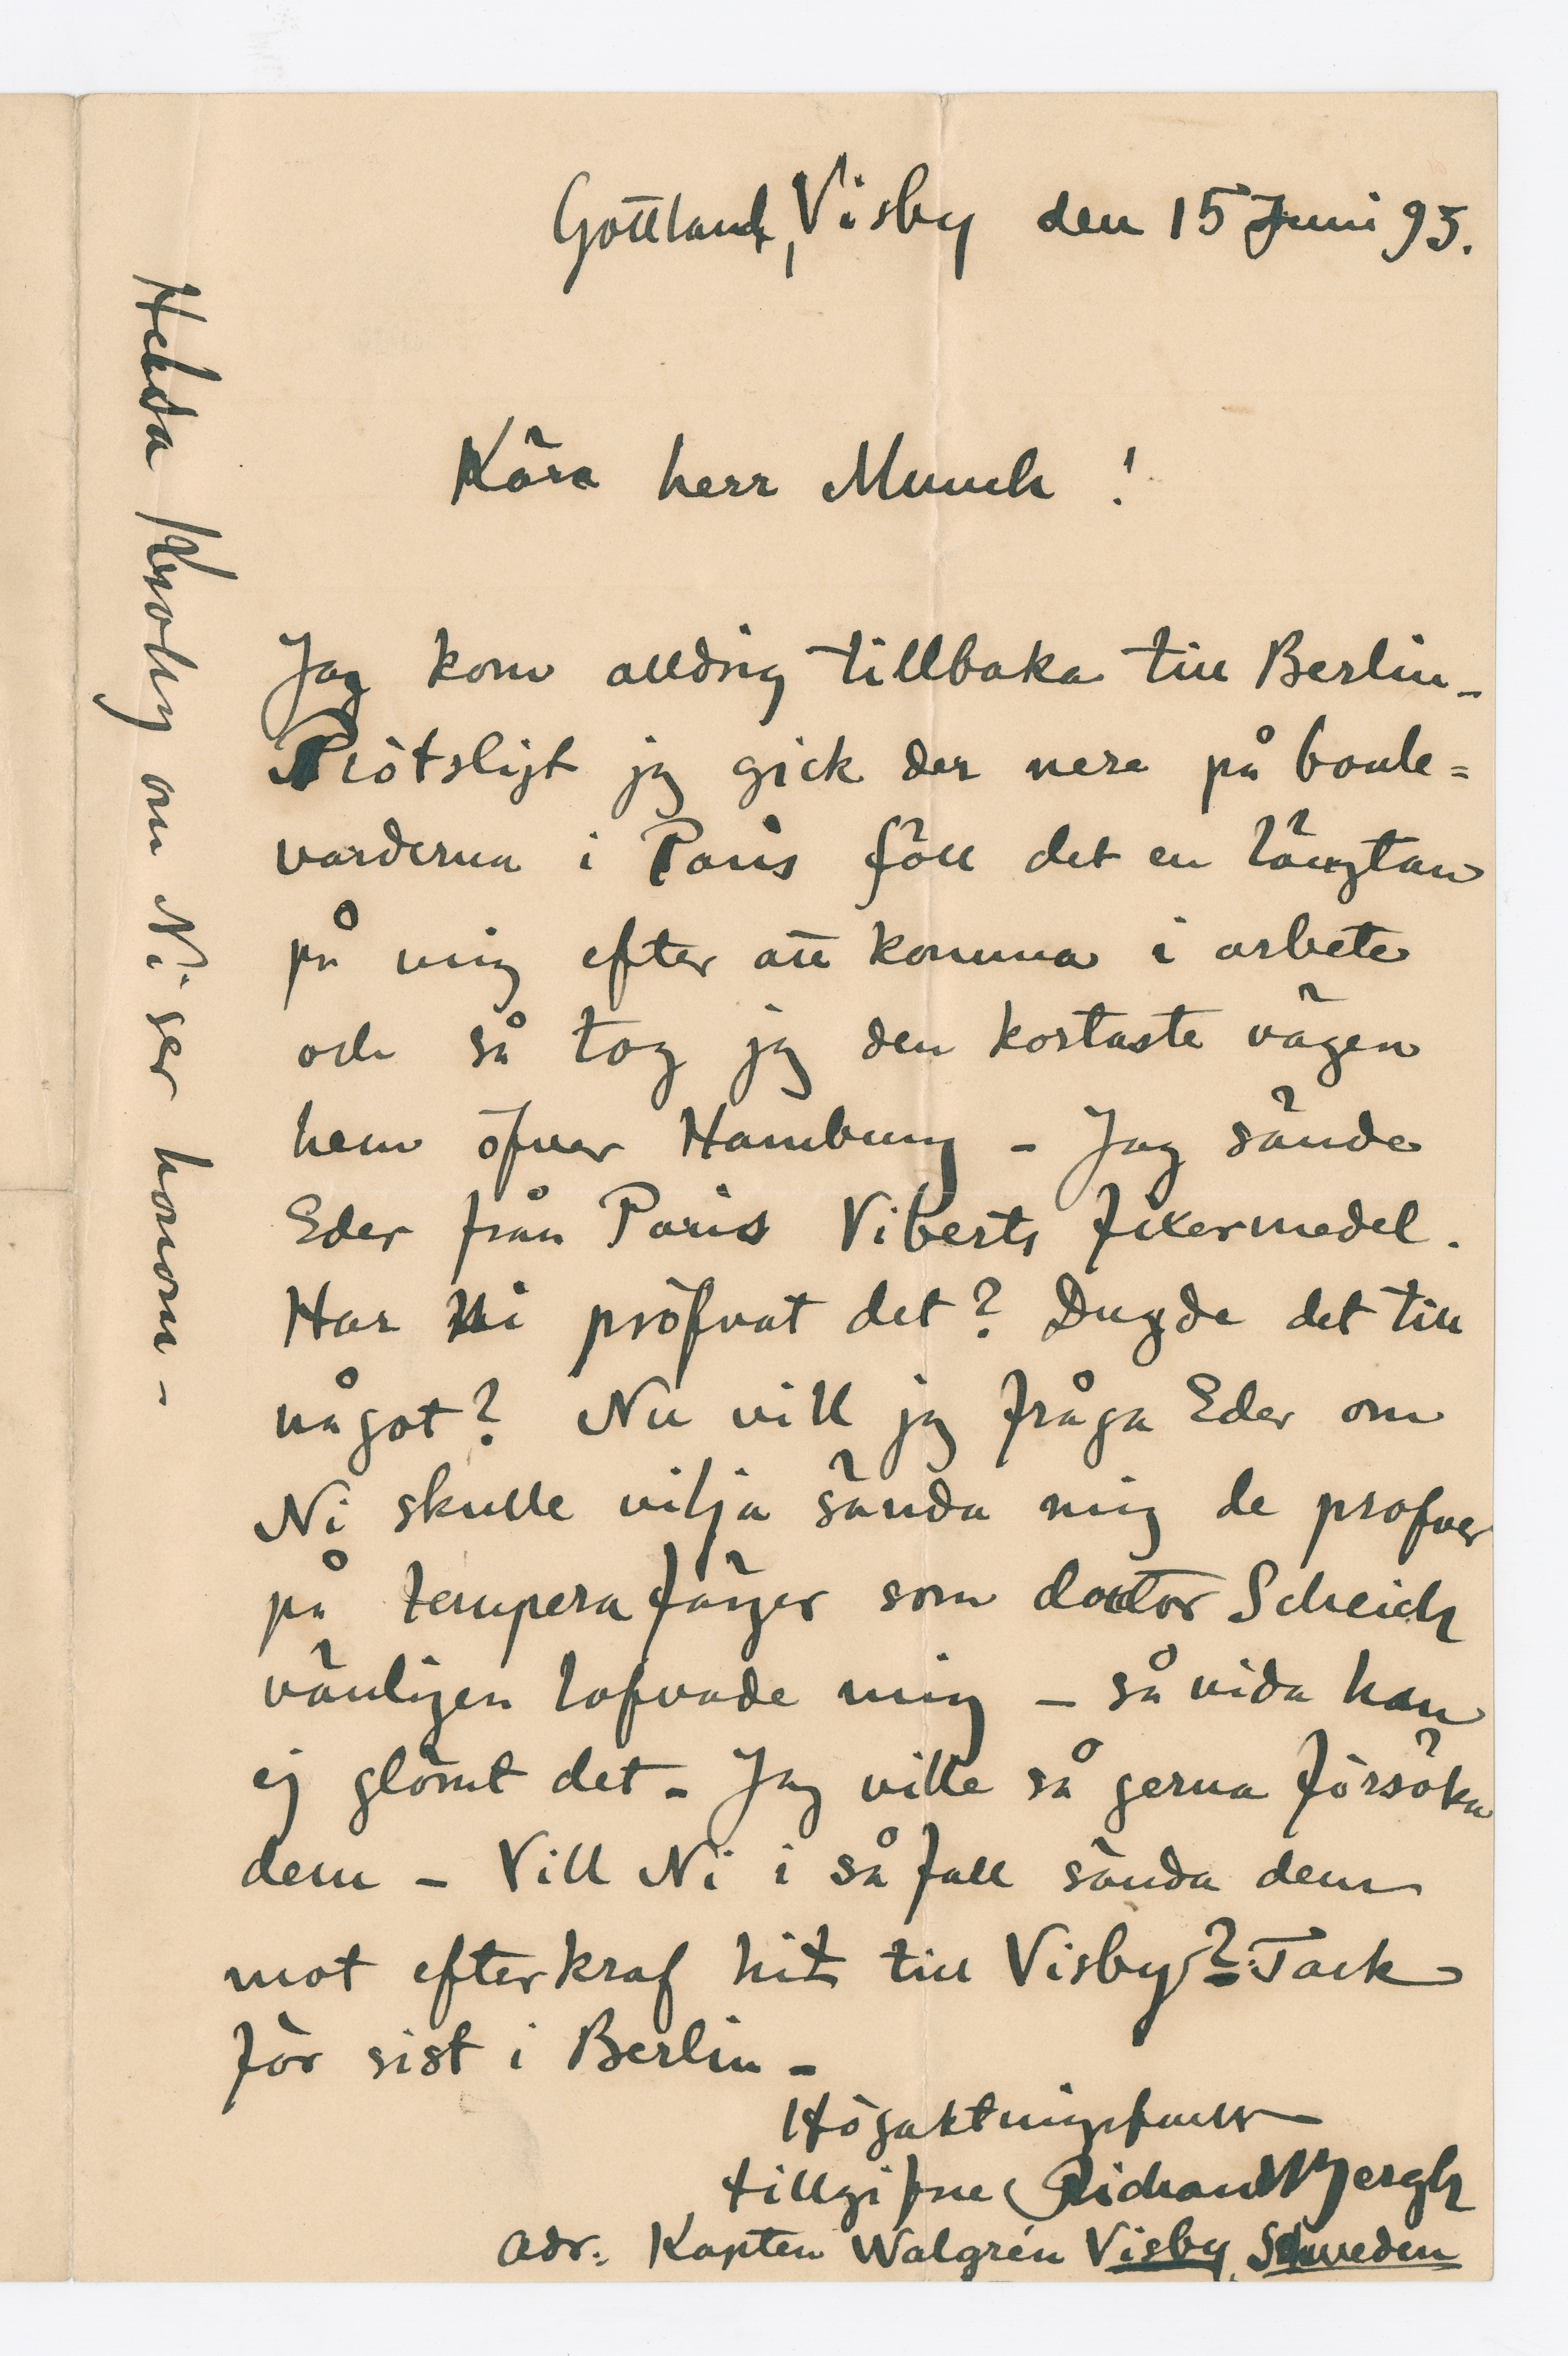 Gottland, Visby den 15 Juni 95.
Kära herr Munch!
Jag kom alldrig tillbaka till Berlin –
Plötsligt jag gick der nere på boule=
varderna i Paris föll det en längtan
på mig efter att komma i arbete
och så tog jag den kortaste vägen
hem öfver Hamburg – Jag sände
Eder från Paris Viberts fixermedel.
Har Ni pröfvat det? Dugde det till
något? Nu vill jag fråga Eder om
Ni skulle vilja sända mig de profver
på tempera färger som doctor Scheich
vänligen lofvade mig – så vida han
ej glömt det – Jag ville så gerna försöka
dem – Vill Ni i så fall sända dem
mot efterkraf hit till Visby? – Tack
för sist i Berlin –
Högaktningsfullt
tillgifne Richard Bergh
adr: Kapten Walgrén Visby, Schweden
Helsa Krohg om Ni ser honom –